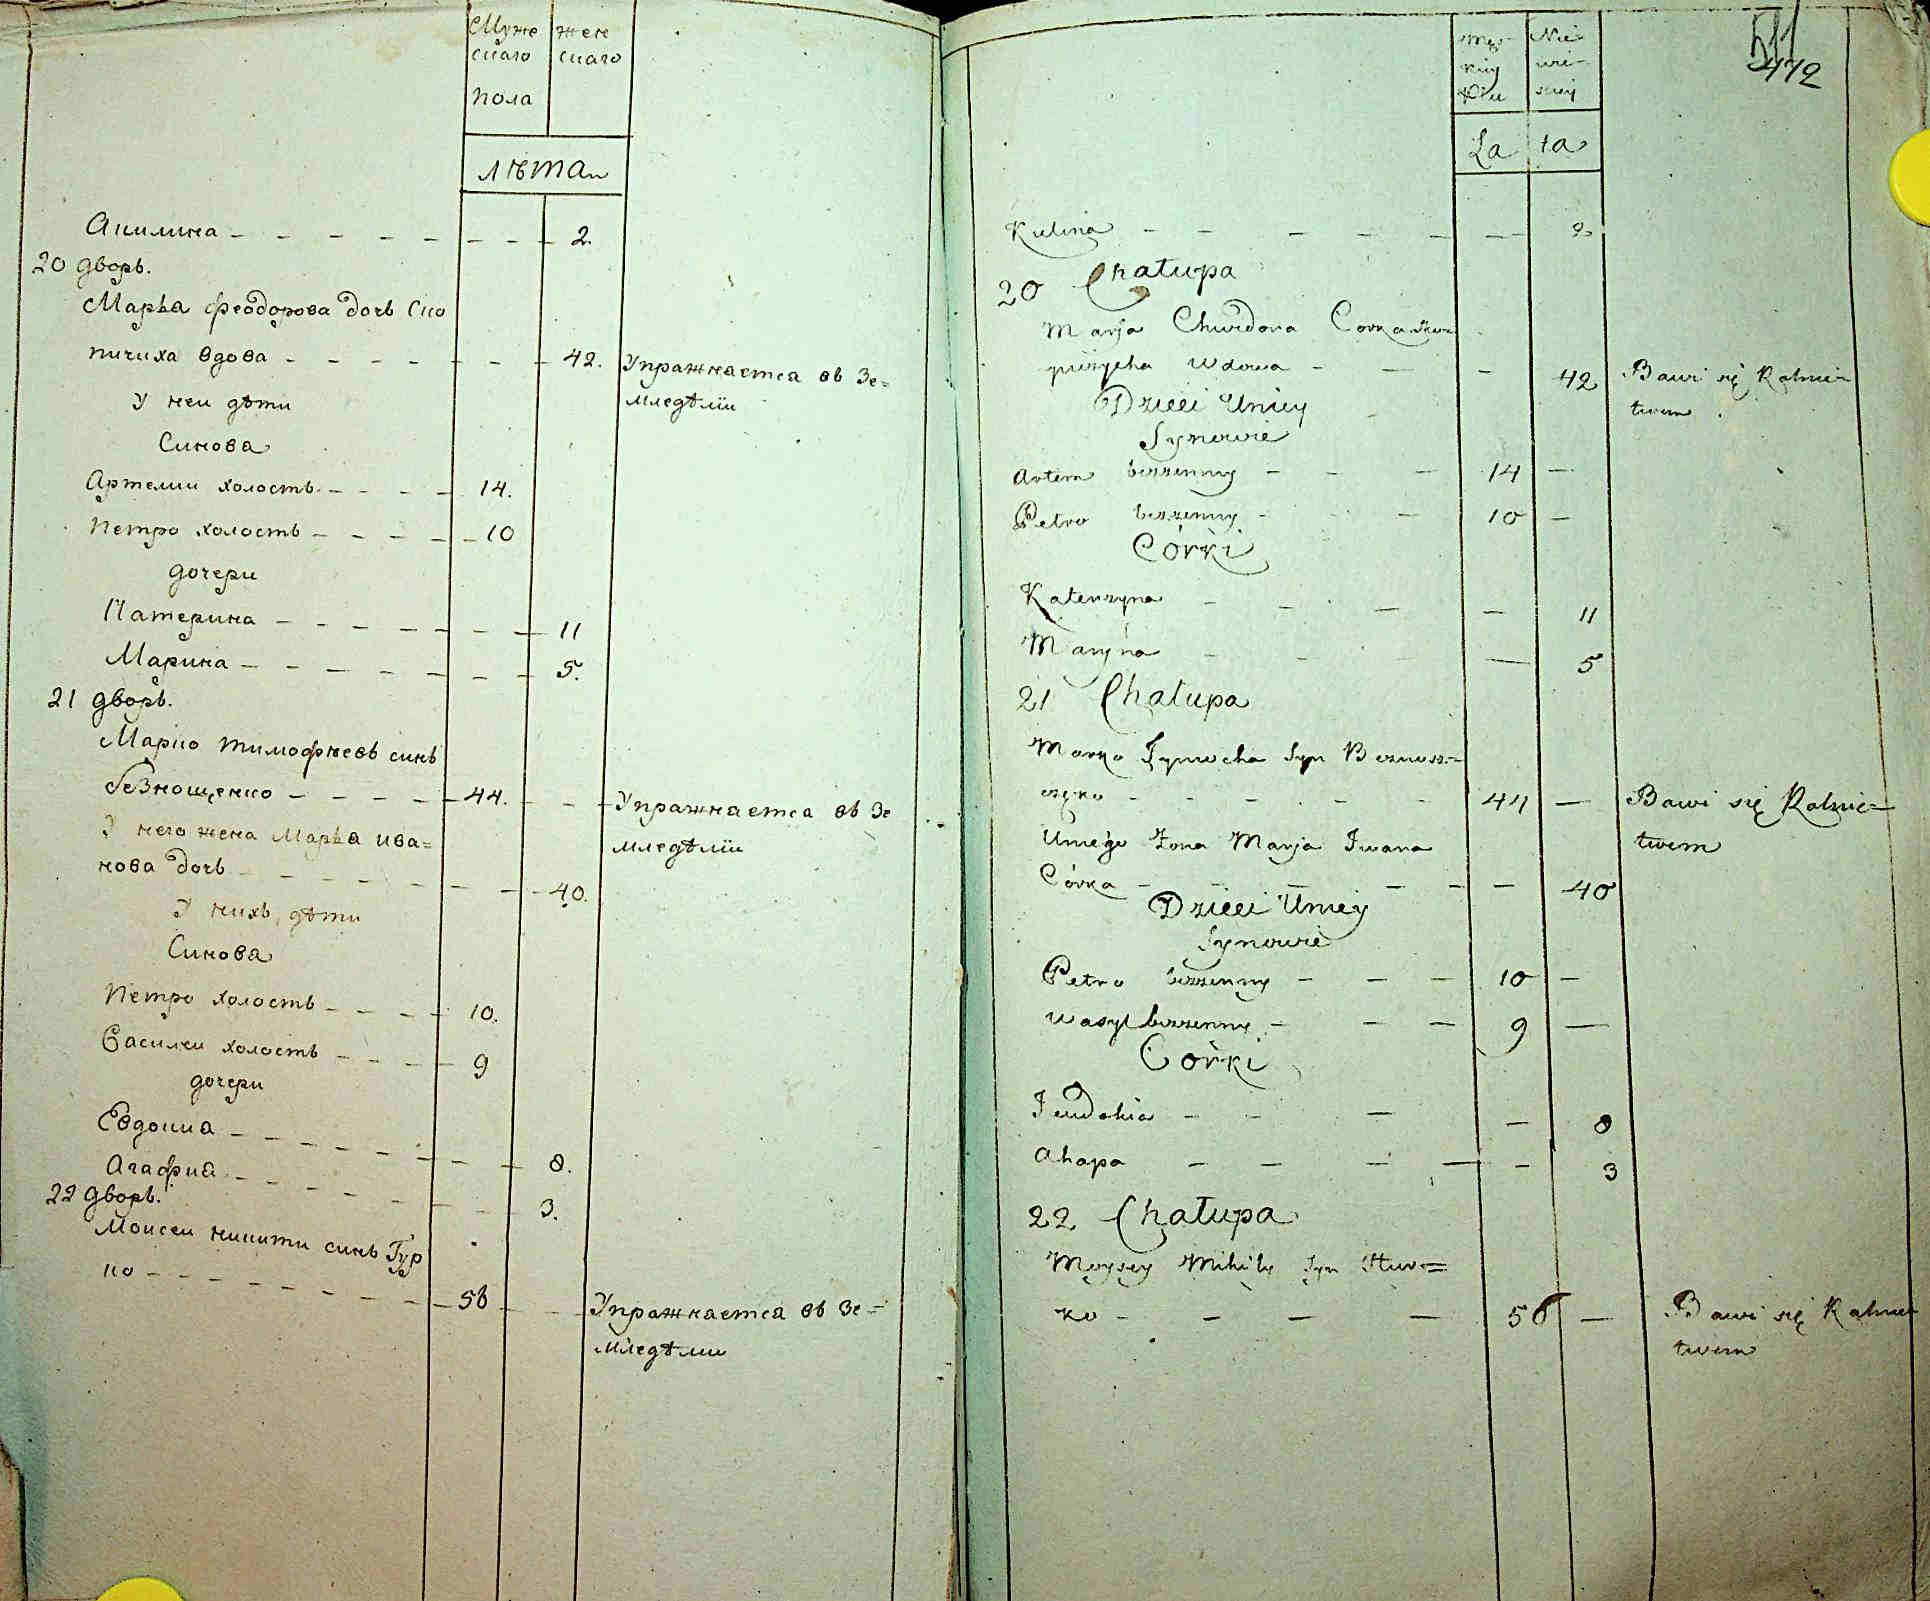 Муже жен
скаго скаго
пола
лѣта
Акилина 2.
20 дворъ.
Марья феодорова дочь Ско
пичиха вдова 42. Упражняется въ Зе=
мледѣлiи
У неи дѣти
Синова
Артемии холостъ 14.
Петро холостъ 10
дочери
Катерина 11
Марина 5.
21 дворъ.
Марко тимофѣевъ синъ
безнощенко 44. Упражняется въ Зе
мледѣлiи
У него жена Марья ива=
нова дочь 40.
У нихъ дѣти
Синова
Петро холостъ 10.
Василеи холостъ 9
дочери
Евдокиа 8.
Агафиа 3.
22 дворъ.
Моисеи никити синъ Гур
ко 56 Упражняется въ Зе=
мледѣлии
511
472
Męz Nie
kiey wie
Płci skiey
La ta
Kulina 2
20 Chałupa
Marja Chwedora Corka Sko
piczycha wdowa 42 Bawi się Rolnic
twem
Dzieci Uniey
Synowie
Artem bezzenny 14
Petro bezzenny 10
Córki
Katerzyna 11
Maryna 5
21 Chałupa
Marko Tymocha Syn Beznosz=
częko 44 Bawi się Rolnic=
twem
Uniego Żona Marja Iwana
Córka 40
Dzieci Uniey
Synowie
Petro bezzenny 10
Wasyl bezzenny 9
Córki
Jewdokia 8
Ahapa 3
22 Chałupa
Moysey Mikity Syn Hur=
ko 56 Bawi się Rolnic
twem